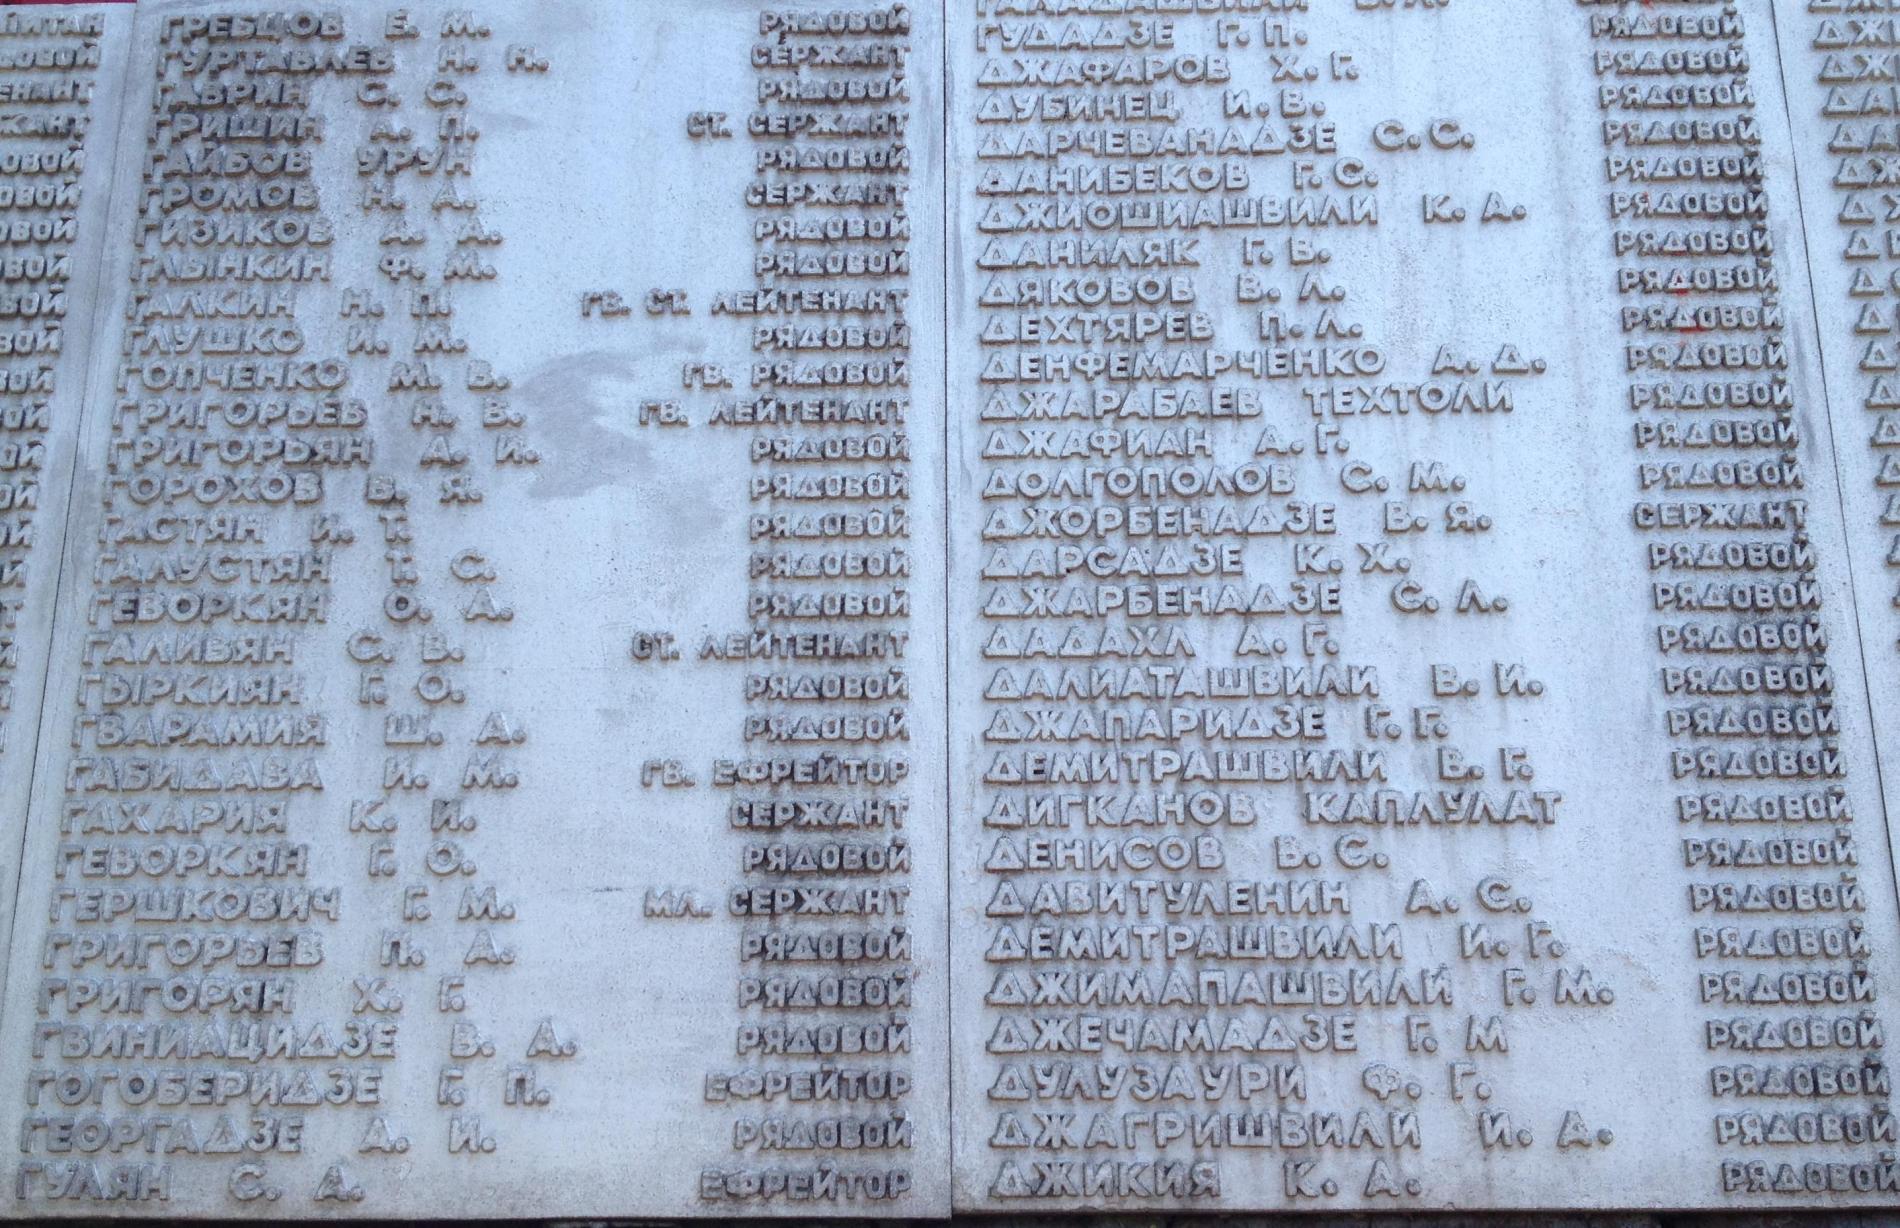 ГРЕБЦОВ Е. М. РЯДОВОЙ
ГУРТАВЛЕВ Н. Н. СЕРЖАНТ
ГАБРИН С. С. РЯДОВОЙ
ГРИШИН А. П. СТ. СЕРЖАНТ
ГАЙБОВ УРУН РЯДОВОЙ
ГРОМОВ Н. А. СЕРЖАНТ
ГИЗИКОВ А. А. РЯДОВОЙ
ГЛЫНКИН Ф. М. РЯДОВОЙ
ГАЛКИН Н. П. ГВ. СТ. ЛЕЙТЕНАНТ
ГЛУШКО И. М. РЯДОВОЙ
ГОПЧЕНКО М. В. ГВ. РЯДОВОЙ
ГРИГОРЬЕВ Н. В. ГВ. ЛЕЙТЕНАНТ
ГРИГОРЬЯН А. И. РЯДОВОЙ
ГОРОХОВ В. Я. РЯДОВОЙ
ГАСТЯН И. Т. РЯДОВОЙ
ГАЛУСТЯН Т. С. РЯДОВОЙ
ГЕВОРКЯН О. А. РЯДОВОЙ
ГАЛИВЯН С. В. СТ. ЛЕЙТЕНАНТ
ГЫРКИЯН Г. О. РЯДОВОЙ
ГВАРАМИЯ Ш. А. РЯДОВОЙ
ГАБИДАВА И. М. ГВ. ЕФРЕЙТОР
ГАХАРИЯ К. И. СЕРЖАНТ
ГЕВОРКЯН Г. О. РЯДОВОЙ
ГЕРШКОВИЧ Г. М. МЛ. СЕРЖАНТ
ГРИГОРЬЕВ П. А. РЯДОВОЙ
ГРИГОРЯН Х. Г. РЯДОВОЙ
ГВИНИАЦИДЗЕ В. А. РЯДОВОЙ
ГОГОБЕРИДЗЕ Г. П. ЕФРЕЙТОР
ГЕОРГАДЗЕ А. И. РЯДОВОЙ
ГУЛЯН С. А. ЕФРЕЙТОР
ГУДАДЗЕ Г. П. РЯДОВОЙ
ДЖАФАРОВ Х. Г. РЯДОВОЙ
ДУБИНЕЦ И. В. РЯДОВОЙ
ДАРЧЕВАНАДЗЕ С. С. РЯДОВОЙ
ДАНИБЕКОВ Г. С. РЯДОВОЙ
ДЖИОШИАШВИЛИ К. А. РЯДОВОЙ
ДАНИЛЯК Г. В. РЯДОВОЙ
ДЯКОВОВ В. Л. РЯДОВОЙ
ДЕХТЯРЕВ П. Л. РЯДОВОЙ
ДЕНФЕМАРЧЕНКО А. Д. РЯДОВОЙ
ДЖАРАБАЕВ ТЕХТОЛИ РЯДОВОЙ
ДЖАФИАН А. Г. РЯДОВОЙ
ДОЛГОПОЛОВ С. М. РЯДОВОЙ
ДЖОРБЕНАДЗЕ В. Я. СЕРЖАНТ
ДАРСАДЗЕ К. Х. РЯДОВОЙ
ДЖАРБЕНАДЗЕ С. Л. РЯДОВОЙ
ДАДАХЛ А. Г. РЯДОВОЙ
ДАЛИАТАШВИЛИ В. И. РЯДОВОЙ
ДЖАПАРИДЗЕ Г. Г. РЯДОВОЙ
ДЕМИТРАШВИЛИ В. Г. РЯДОВОЙ
ДИГКАНОВ КАПЛУЛАТ РЯДОВОЙ
ДЕНИСОВ В. С. РЯДОВОЙ
ДАВИТУЛЕНИН А. С. РЯДОВОЙ
ДЕМИТРАШВИЛИ И. Г. РЯДОВОЙ
ДЖИМАПАШВИЛИ Г. М. РЯДОВОЙ
ДЖЕЧАМАДЗЕ Г. М РЯДОВОЙ
ДУЛУЗАУРИ Ф. Г. РЯДОВОЙ
ДЖАГРИШВИЛИ И. А. РЯДОВОЙ
ДЖИКИЯ К. А. РЯДОВОЙ